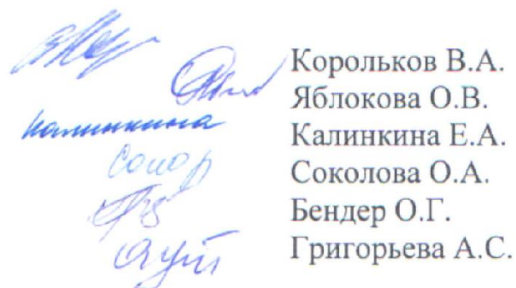 Корольков В.А.
Яблокова О.В.
калинкина Калинкина Е.А.
Соколова О.А.
Бендер О.Г.
Григорьева А.С.